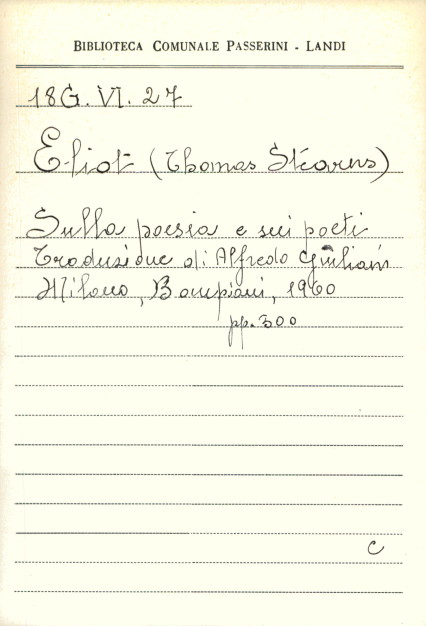 BIBLIOTECA COMUNALE PASSERINI - LANDI
18G. VI. 27
Eliot (Thomas Stéarns)
Sulla poesia e sui poeti
Traduzione di Alfredo Giuliani
Milano, Bompiani, 1960
pp. 300
C